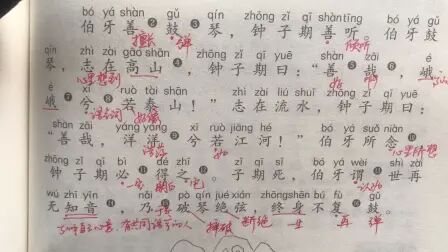 bó yá shàn gǔ qín zhōng zǐ qī shàntīng bó yá gǔ
伯牙善❷鼓❸琴，钟子期善听。伯牙鼓
擅长 弹 倾听
qín zhì zài gāo shān zhōng zǐ qī yuē shàn zāi é
琴，志在高山❹，钟子期曰：“善哉，峨
心里想到 好
é xī ruò tài shān zhì zài liú shuǐ zhōng zǐ qī yuē
峨❼兮若泰山！”志在流水，钟子期曰：
语气词 好像
shàn zāi yáng yáng xī ruò jiāng hé bó yá suǒ niàn
“善哉，洋洋兮若江河！”伯牙所念
心里所想
zhōng zǐ qī bì dé zhī zǐ qī sǐ bó yá wèi shì zài
钟子期必得之。子期死，伯牙谓世再
以为
wú zhī yīn nǎi pò qín jué xián zhōngshēn bú fù gǔ
无知音，乃破琴绝弦，终身不复鼓。
摔破 断绝 一生 再 弹